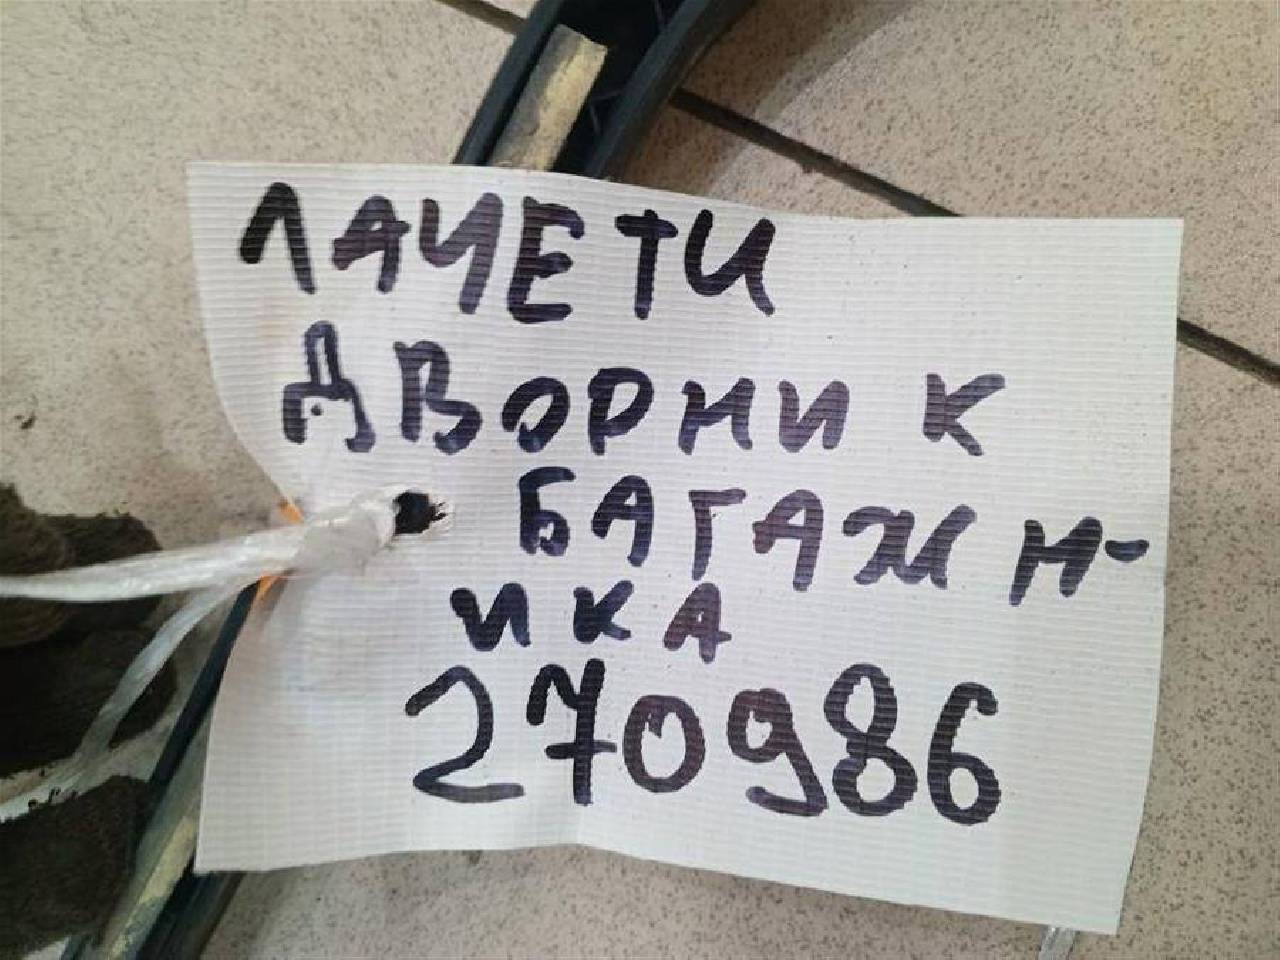 ЛАЧЕТИ
ДВОРНИК
БАГАЖН-
ИКА
270986